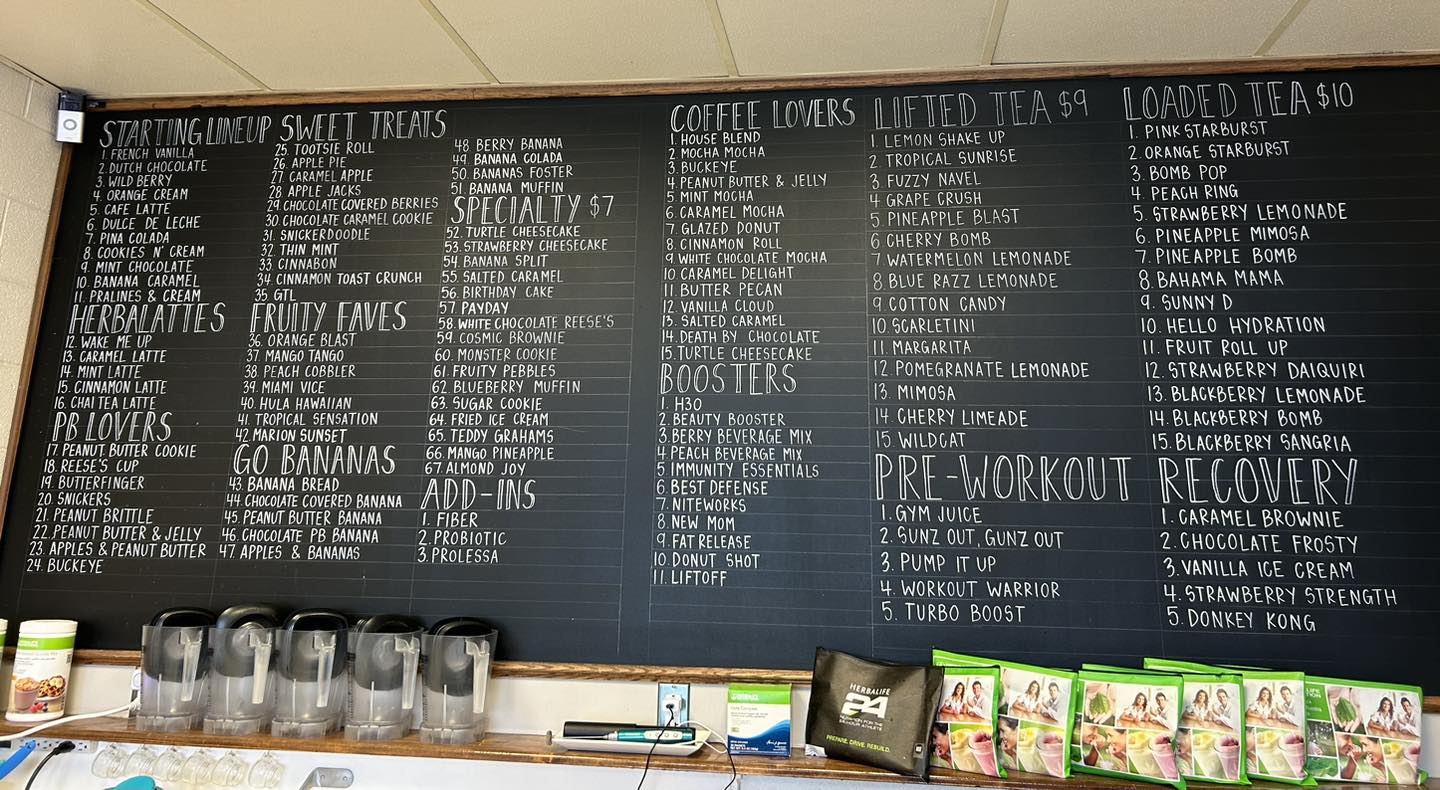 STARTING LINEUP
1. FRENCH VANILLA
2. DUTCH CHOCOLATE
3. WILD BERRY
4. ORANGE CREAM
5. CAFE LATTE
6. DULCE DE LECHE
7. PINA COLADA
8. COOKIES N' CREAM
9. MINT CHOCOLATE
10. BANANA CARAMEL
11. PRALINES & CREAM
HERBALATTES
12. WAKE ME UP
13. CARAMEL LATTE
14. MINT LATTE
15. CINNAMON LATTE
16. CHAI TEA LATTE
PB LOVERS
17. PEANUT BUTTER COOKIE
18. REESE'S CUP
19. BUTTERFINGER
20. SNICKERS
21. PEANUT BRITTLE
22. PEANUT BUTTER & JELLY
23. APPLES & PEANUT BUTTER
24. BUCKEYE
SWEET TREATS
25. TOOTSIE ROLL
26. APPLE PIE
27. CARAMEL APPLE
28. APPLE JACKS
29. CHOCOLATE COVERED BERRIES
30. CHOCOLATE CARAMEL COOKIE
31. SNICKERDOODLE
32. THIN MINT
33. CINNABON
34. CINNAMON TOAST CRUNCH
35. GTL
FRUITY FAVES
36. ORANGE BLAST
37. MANGO TANGO
38. PEACH COBBLER
39. MIAMI VICE
40. HULA HAWAIIAN
41. TROPICAL SENSATION
42. MARION SUNSET
GO BANANAS
43. BANANA BREAD
44. CHOCOLATE COVERED BANANA
45. PEANUT BUTTER BANANA
46. CHOCOLATE PB BANANA
47. APPLES & BANANAS
48. BERRY BANANA
49. BANANA COLADA
50. BANANAS FOSTER
51. BANANA MUFFIN
SPECIALTY $7
52. TURTLE CHEESECAKE
53. STRAWBERRY CHEESECAKE
54. BANANA SPLIT
55. SALTED CARAMEL
56. BIRTHDAY CAKE
57. PAYDAY
58. WHITE CHOCOLATE REESE'S
59. COSMIC BROWNIE
60. MONSTER COOKIE
61. FRUITY PEBBLES
62. BLUEBERRY MUFFIN
63. SUGAR COOKIE
64. FRIED ICE CREAM
65. TEDDY GRAHAMS
66. MANGO PINEAPPLE
67. ALMOND JOY
ADD-INS
1. FIBER
2. PROBIOTIC
3. PROLESSA
COFFEE LOVERS
1. HOUSE BLEND
2. MOCHA MOCHA
3. BUCKEYE
4. PEANUT BUTTER & JELLY
5. MINT MOCHA
6. CARAMEL MOCHA
7. GLAZED DONUT
8. CINNAMON ROLL
9. WHITE CHOCOLATE MOCHA
10. CARAMEL DELIGHT
11. BUTTER PECAN
12. VANILLA CLOUD
13. SALTED CARAMEL
14. DEATH BY CHOCOLATE
15. TURTLE CHEESECAKE
BOOSTERS
1. H3O
2. BEAUTY BOOSTER
3. BERRY BEVERAGE MIX
4. PEACH BEVERAGE MIX
5 IMMUNITY ESSENTIALS
6. BEST DEFENSE
7. NITEWORKS
8. NEW MOM
9. FAT RELEASE
10. DONUT SHOT
11. LIFTOFF
LIFTED TEA $9
1. LEMON SHAKE UP
2. TROPICAL SUNRISE
3. FUZZY NAVEL
4. GRAPE CRUSH
5. PINEAPPLE BLAST
6. CHERRY BOMB
7. WATERMELON LEMONADE
8. BLUE RAZZ LEMONADE
9. COTTON CANDY
10. SCARLETINI
11. MARGARITA
12. POMEGRANATE LEMONADE
13. MIMOSA
14. CHERRY LIMEADE
15. WILDCAT
PRE-WORKOUT
1. GYM JUICE
2. SUNZ OUT, GUNZ OUT
3. PUMP IT UP
4. WORKOUT WARRIOR
5. TURBO BOOST
LOADED TEA $10
1. PINK STARBURST
2. ORANGE STARBURST
3. BOMB POP
4. PEACH RING
5. STRAWBERRY LEMONADE
6. PINEAPPLE MIMOSA
7. PINEAPPLE BOMB
8. BAHAMA MAMA
9. SUNNY D
10. HELLO HYDRATION
11. FRUIT ROLL UP
12. STRAWBERRY DAIQUIRI
13. BLACKBERRY LEMONADE
14. BLACKBERRY BOMB
15. BLACKBERRY SANGRIA
RECOVERY
1. CARAMEL BROWNIE
2. CHOCOLATE FROSTY
3. VANILLA ICE CREAM
4. STRAWBERRY STRENGTH
5. DONKEY KONG
HERBALIFE
24
NUTRITION FOR THE
24-HOUR ATHLETE
PREPARE. DRIVE. REBUILD.